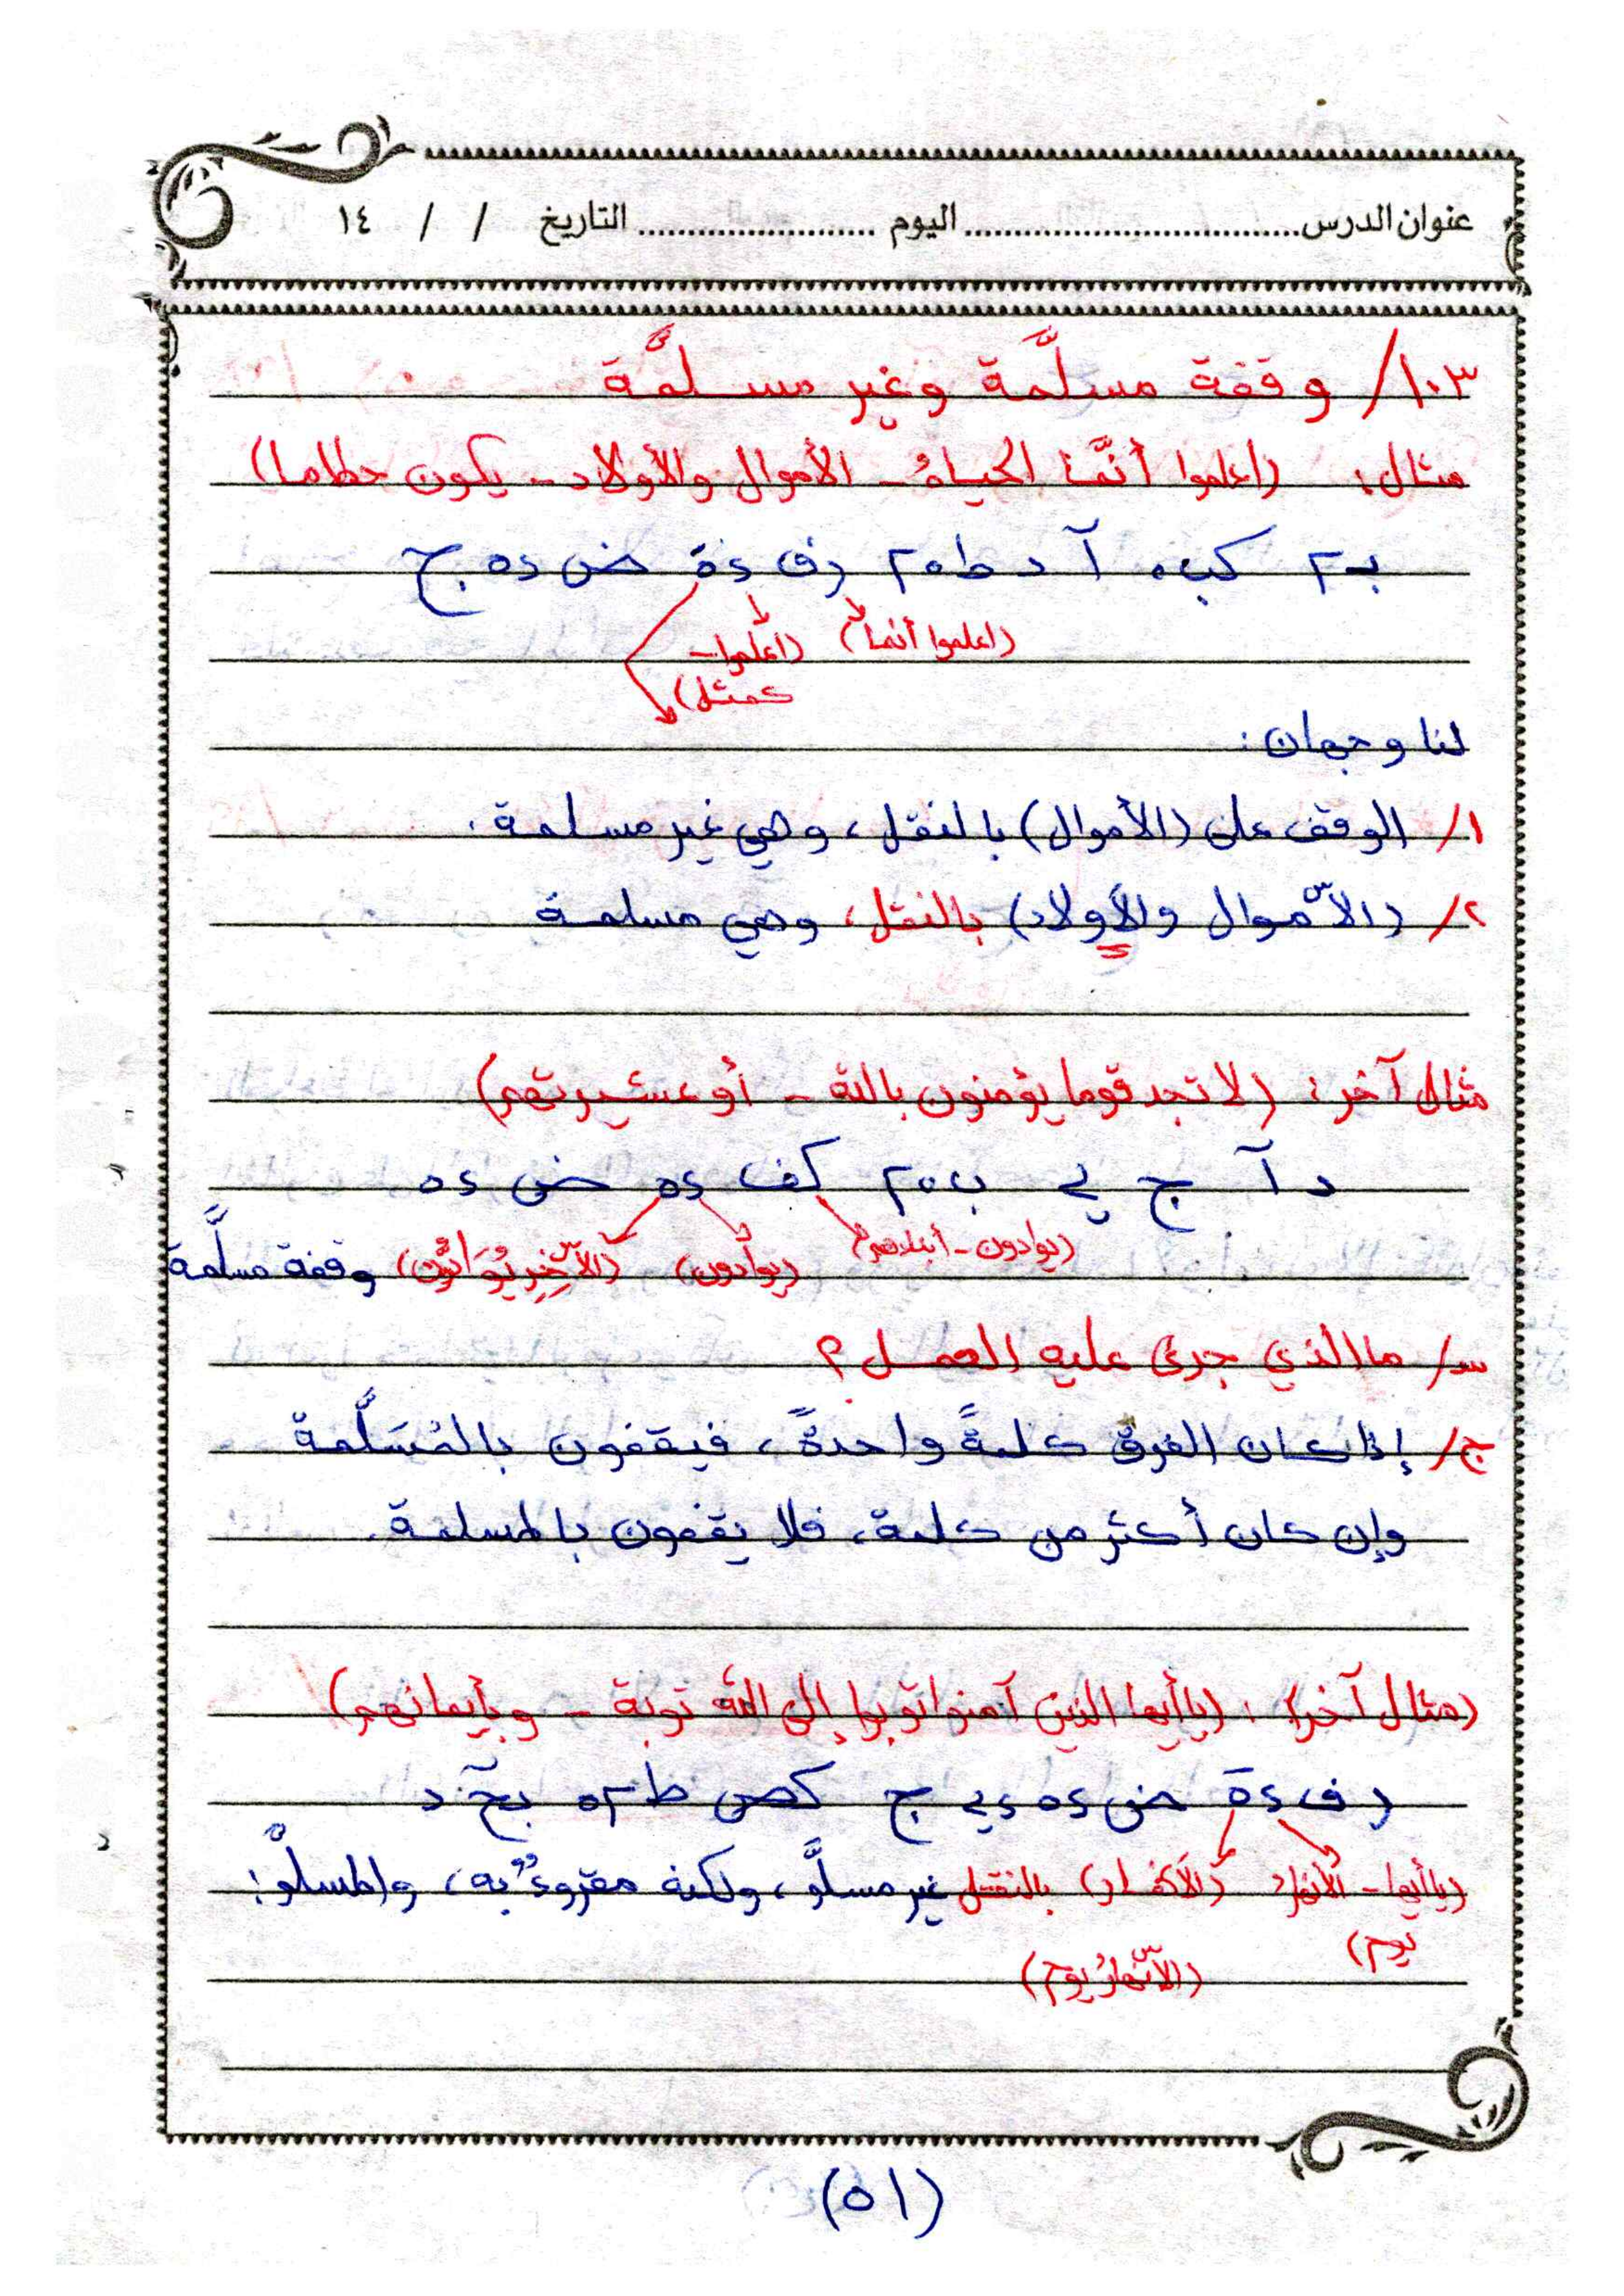 عنوان الدرس.................................اليوم ........................التاريخ / / ١٤
١٠٣/ وقفة مسلَّمة وغير مسلَّمة
مثال: (اعلموا أنَّما الحياةُ - الأموال والأولاد - يكون حطاما)
ب٢ كب٥ آ د ط٢٥ رف ٤ة ض ٤٥ ج
(اعلموا أنما) (اعلموا -
كمثل)
لنا وجهان:
١/ الوقف على (الأموال) بالنقل، وهي غير مسلمة.
٢/ (الأموال والأولاد) بالنقل، وهي مسلمة
مثال آخر: (لا تجد قوما يؤمنون بالله - أو عشيرتهم)
د آ ج ي ب٢٥ كف ٤٥ ض ٤٥
(يوادون - أبناءهم) (يوادون) (الآخِرِ يُوَادُّون) وقفة مسلَّمة
س/ ما الذي جرى عليه العمل؟
ج/ إذا كان الفرق كلمةً واحدةً، فيقفون بالمُسَلَّمة
وإن كان أكثر من كلمة، فلا يقفون بالمسلمة.
(مثال آخر): (يا أيها الذين آمنوا توبوا إلى الله توبة - وبأيمانهم)
رف ٤ة ض ٤٥ ي ج كص ط٢٥ د
(يا أيها - الأنهار (الأنهار) بالنقل غير مسلَّم، ولكنه مقروءٌ به، والمسلَّم:
يوم)
(الأنهارُ يوم)
(٥١)